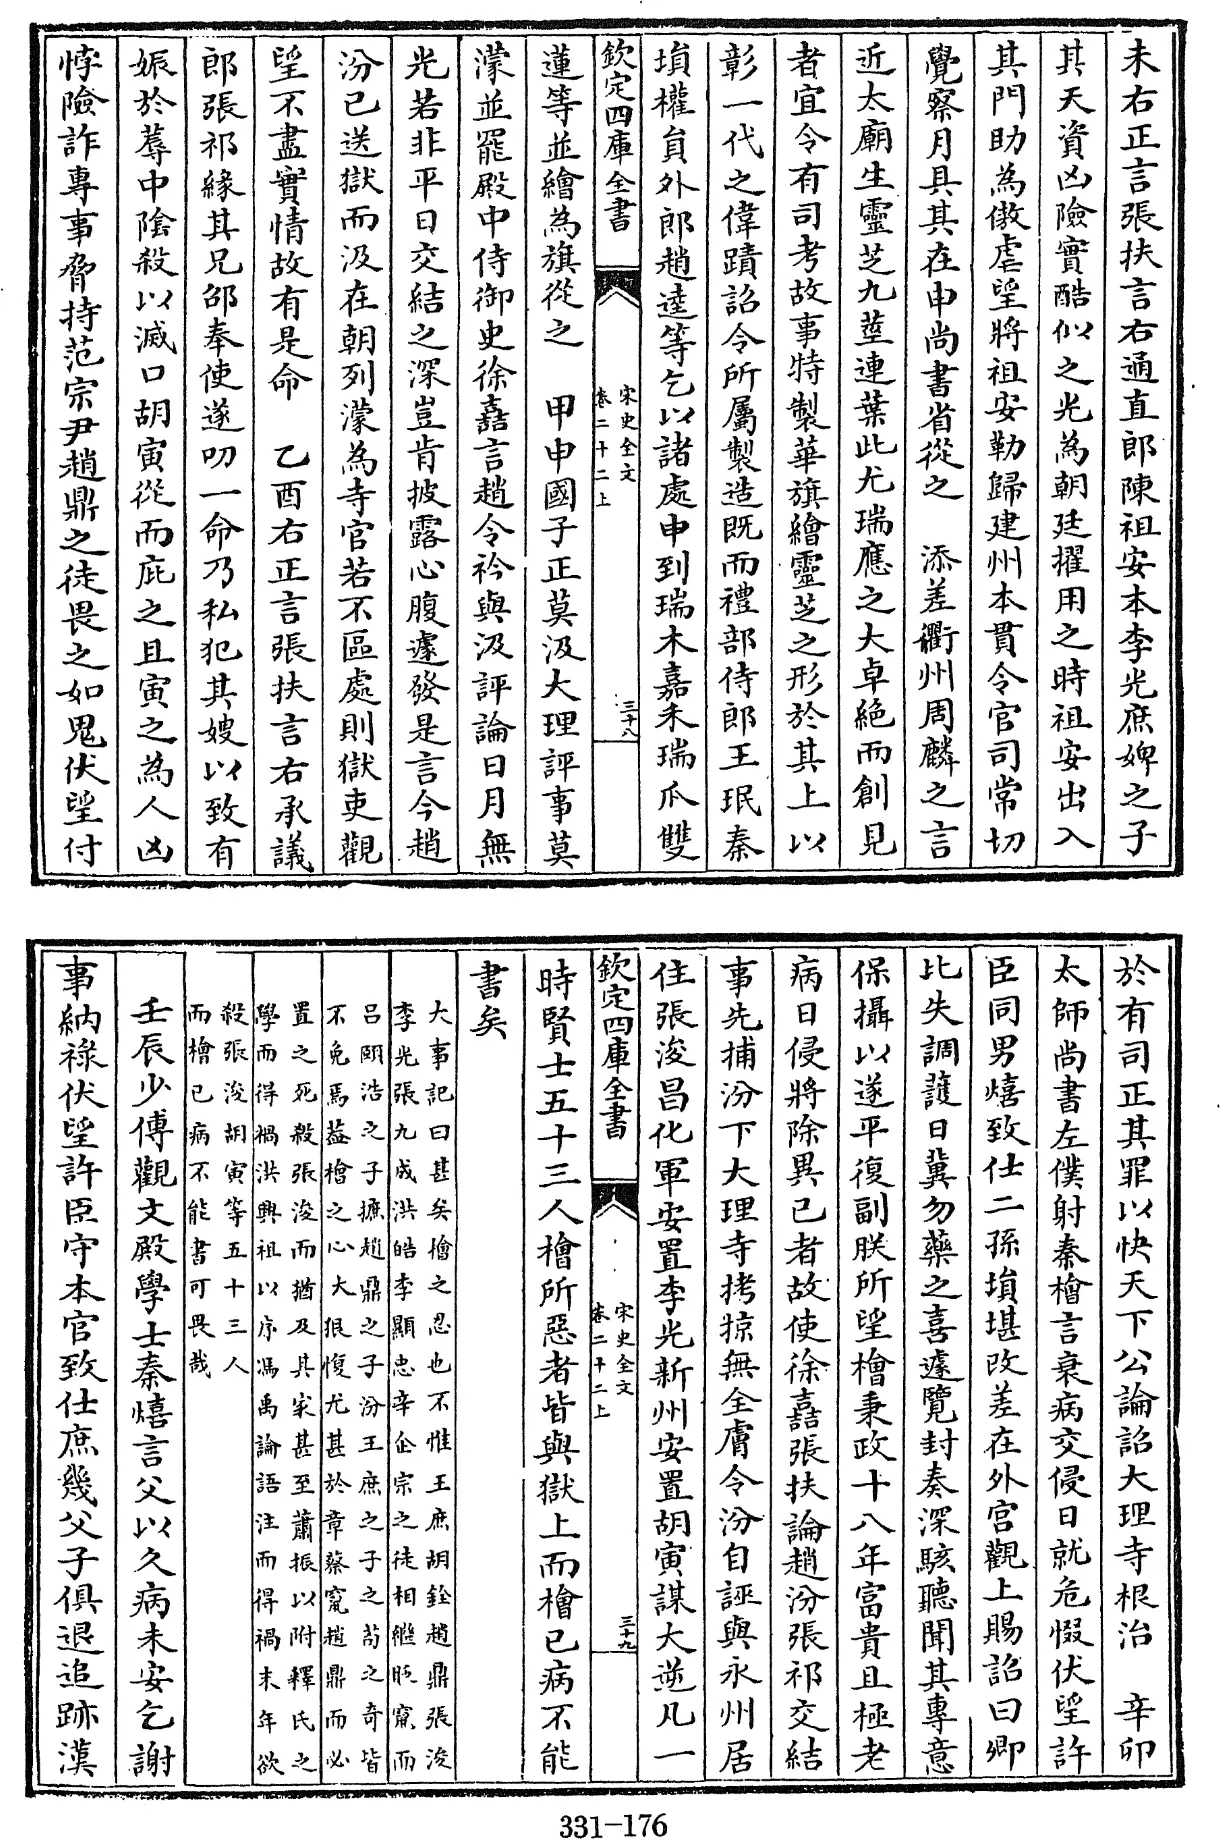 未右正言張扶言右通直郎陳祖安本李光庶婢之子
其天資凶險實酷似之光為朝廷擢用之時祖安出入
其門助為傲虐望將祖安勒歸建州本貫令官司常切
覺察月具其在申尚書省從之　添差衢州周麟之言
近太廟生靈芝九莖連葉此尤瑞應之大卓絶而創見
者宜令有司考故事特製華旗繪靈芝之形於其上以
彰一代之偉蹟詔令所屬製造既而禮部侍郎王珉秦
塤權員外郎趙逵等乞以諸處申到瑞木嘉禾瑞瓜雙
欽定四庫全書
宋史全文
卷二十二上
三十八
蓮等並繪為旗從之　甲申國子正莫汲大理評事莫
濛並罷殿中侍御史徐嚞言趙令衿與汲評論日月無
光若非平日交結之深豈肯披露心腹遽發是言今趙
汾已送獄而汲在朝列濛為寺官若不區處則獄吏觀
望不盡實情故有是命　乙酉右正言張扶言右承議
郎張祁緣其兄邵奉使遂叨一命乃私犯其嫂以致有
娠於蓐中陰殺以滅口胡寅從而庇之且寅之為人凶
悖險詐專事脅持范宗尹趙鼎之徒畏之如鬼伏望付
於有司正其罪以快天下公論詔大理寺根治　辛卯
太師尚書左僕射秦檜言衰病交侵日就危惙伏望許
臣同男熺致仕二孫塤堪改差在外宮觀上賜詔曰卿
比失調護日冀勿藥之喜遽覽封奏深駭聽聞其專意
保攝以遂平復副朕所望檜秉政十八年富貴且極老
病日侵將除異己者故使徐嚞張扶論趙汾張祁交結
事先捕汾下大理寺拷掠無全膚令汾自誣與永州居
住張浚昌化軍安置李光新州安置胡寅謀大逆凡一
欽定四庫全書
宋史全文
卷二十二上
三十九
時賢士五十三人檜所惡者皆與獄上而檜已病不能
書矣
大事記曰甚矣檜之忍也不惟王庶胡銓趙鼎張浚
李光張九成洪皓李顯忠辛企宗之徒相繼貶竄而
呂頤浩之子摭趙鼎之子汾王庶之子之荀之奇皆
不免焉葢檜之心大狠愎尤甚於章蔡竄趙鼎而必
置之死殺張浚而猶及其家甚至蕭振以附釋氏之
學而得禍洪興祖以序馮禹論語注而得禍末年欲
殺張浚胡寅等五十三人
而檜已病不能書可畏哉
壬辰少傅觀文殿學士秦熺言父以久病未安乞謝
事納祿伏望許臣守本官致仕庶幾父子俱退追跡漢
331-176